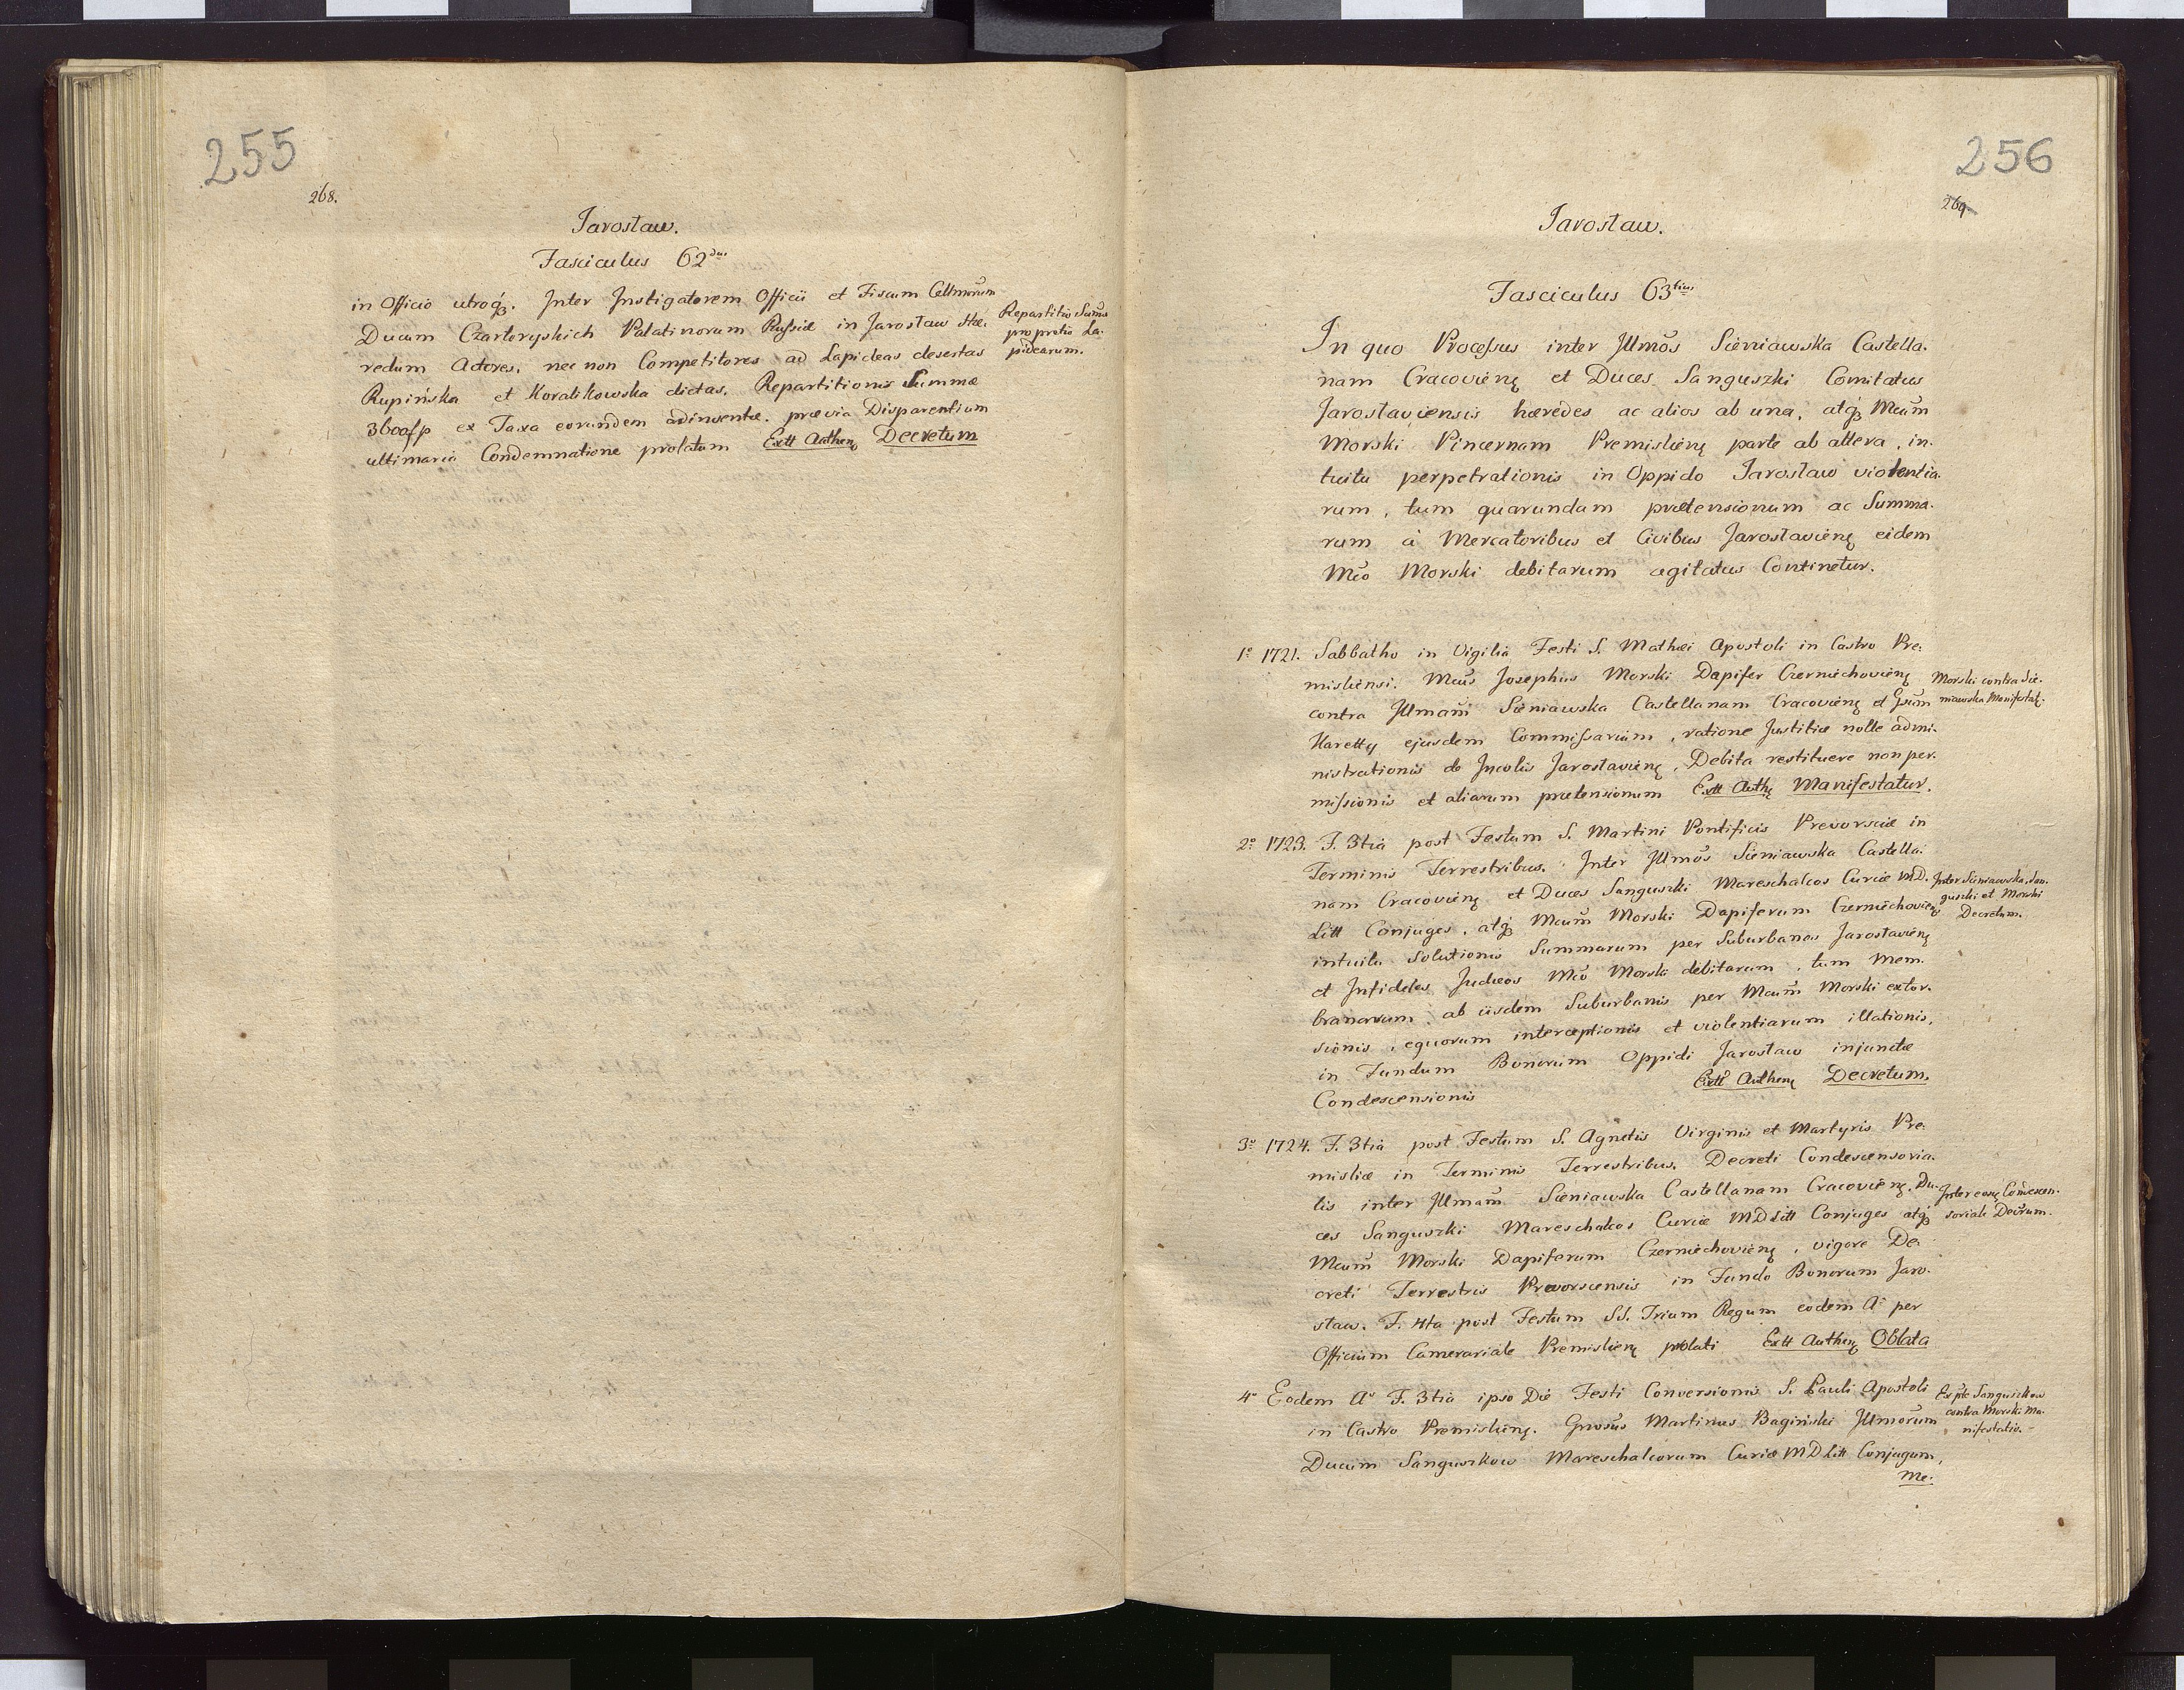 255
268.
Jarosław.
Fasciculus 62dus
in Officio utroq3. Inter Instigatorem Officii et Fiscum Celmorum
Ducum Czartoryskich Palatinorum Russiæ in Jarosław Hæ:
redum Actores, nec non Competitores ad Lapideas desertas
Rupińska et Koralikowska dictas, Repartitionis Summæ
3600 fp ex Taxa eorundem adinventæ. prævia Disparentium
ultimaria Condemnatione prolatum Extt Authen Decretum
Repartitio Sumæ
pro pretio La:
pidearum.
256
269
Jarosław.
Fasciculus 63tius
In quo Processus inter Illmos Sieniawska Castella:
nam Cracovien et Duces Sanguszki Comitatus
Jaroslaviensis hæredes ac alios ab una, atq3 Mcum
Morski Pincernam Premislien parte ab altera, in:
tuitu perpetrationis in Oppido Jarosław violentia:
rum, tum quarundam prætensionum ac Summa:
rum à Mercatoribus et Civibus Jaroslavien eidem
Mco Morski debitarum agitatus Continetur.
1o 1721. Sabbatho in Vigilia Festi S. Mathæi Apostoli in Castro Pre:
misliensi. Mcus Josephus Morski Dapifer Czerniechovien
contra Illmam Sieniawska Castellanam Cracovien et Gsum
Haretty ejusdem Commissarium, ratione Justitiæ nolle admi:
nistrationis de Incolis Jaroslavien, Debita restituere non per:
missionis et aliarum prætensionum Extt Auth Manifestatur.
Morski contra Sie:
niawska Manifestat.
2o 1723. F. 3tia post Festum S. Martini Pontificis Prevorsciæ in
Terminis Terrestribus. Inter Illmos Sieniawska Castella:
nam Cracovien et Duces Sanguszki Mareschalcos Curiæ MD.
Litt Conjuges, atq3 Mcum Morski Dapiferum Czerniechovien
intuitu Solutionis Summarum per Suburbanos Jaroslavien
et Infideles Judæos Mco Morski debitarum, tum Mem:
branarum ab iisdem Suburbanis per Mcum Morski extor:
sionis, equorum interceptionis et violentiarum illationis,
in Fundum Bonorum Oppidi Jarosław injunctæ
Condescensionis Extt Authen Decretum.
Inter Sieniawska, San:
guszki et Morski
Decretum.
3o 1724. F. 3tia post Festum S. Agnetis Virginis et Martyris Pre:
misliæ in Terminis Terrestribus. Decreti Condescensoria:
lis inter Illmam Sieniawska Castellanam Cracovien, Du:
ces Sanguszki Mareschalcos Curiæ MD Litt Conjuges atq3
Mcum Morski Dapiferum Czerniechovien, vigore De:
creti Terrestris Prevorscensis in Fundo Bonorum Jaro:
sław. F. 4ta post Festum SS. Trium Regum eodem Ao per
Officium Camerariale Premislien prolati Extt Authen Oblata
Inter eosq Condescen:
soriale Decrum.
4o Eodem Ao F. 3tia ipso Die Festi Conversionis S. Pauli Apostoli
in Castro Premislien. Gnosus Martinus Bagiński Illmorum
Ducum Sanguszkow Mareschalcorum Curiæ MD Litt Conjugum,
Me:
Ex pte Sanguszkow
contra Morski Ma:
nifestatio.